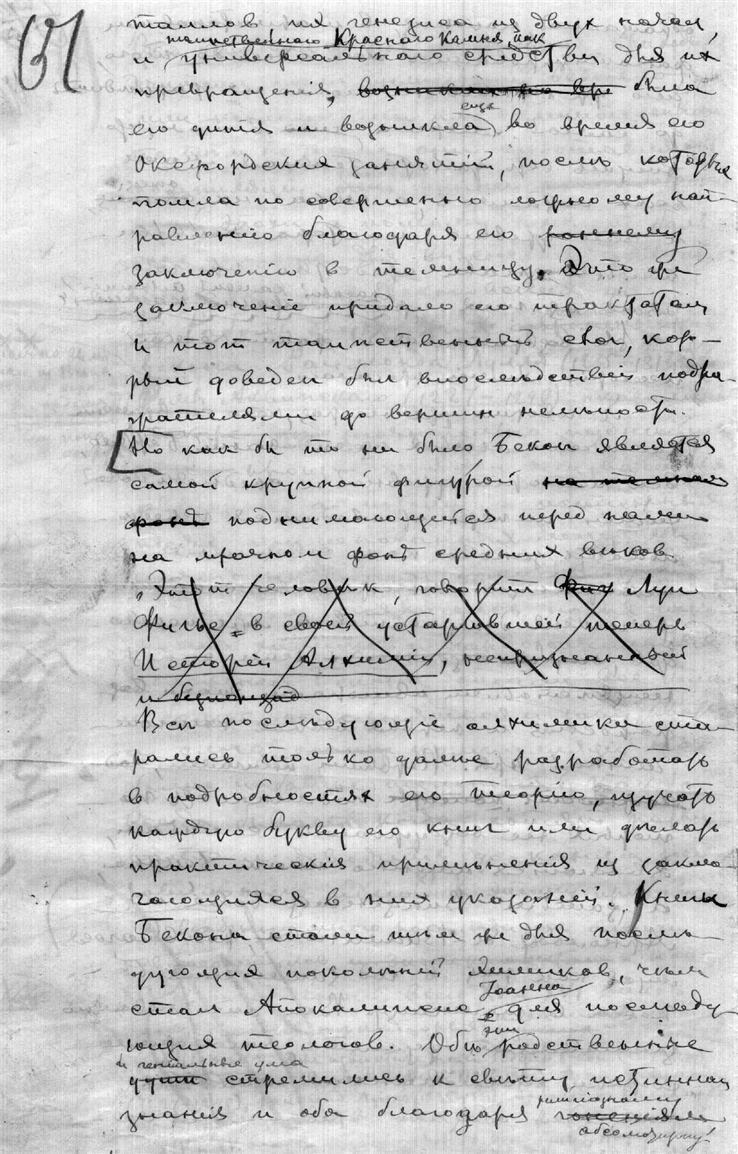 151
таллов их генезиса из двух начал,
таинственного Краснаго Камня как
и универсальнаго средства для их
превращения, возникли во вре была
его дитя и возникла еще во время его
Оксфордских занятий, послѣ которых
пошла по совершенно ложному нап-
равленію благодаря его
заключенію в темницу. Это же
заключеніе придало его трактатам
и тот таинственный слог, кото-
рый доведен был впослѣдствіи подра-
жателями до вершин нелѣпости.
Но как бы то ни было Бекон является
самой крупной фигурой на темном
фонѣ поднимающейся перед нами
на мрачном фонѣ средних вѣков.
„Этот человѣк, говорит Фиг Луи
Фигье в своей устарѣвшей теперь
Исторіи Алхиміи, непризнанный
и
Всѣ послѣдующіе алхимики ста-
рались только далѣе разработать
в подробностях его теорію, изучать
каждую букву его книг или дѣлать
практическія примѣненія из заклю-
чающихся в них указаній. Книги
Бекона стали тѣм же для послѣ-
дующих поколѣній химиков, чѣм
Іоанна
стал Апокалипсис для послѣду-
эти
ющих теологов. Оба родственные
и геніальные ума
души стремились к свѣту истиннаго
знанія и оба благодаря гоненіям
абсолютизму!